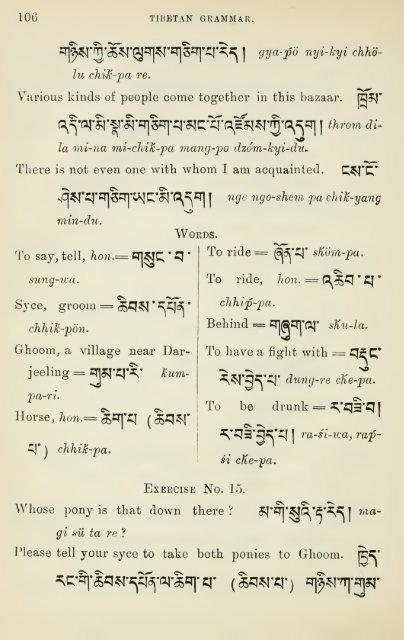 106 TIBETAN GRAMMAR.
གཉིས་ཀྱི་ཆོས་ལུགས་གཅིག་པ་རེད། gya-pö nyi-kyi chhö-
lu chik-pa re.
Various kinds of people come together in this bazaar. ཁྲོམ་
འདི་ལ་མི་སྣ་མི་གཅིག་པ་མང་པོ་འཛོམས་ཀྱི་འདུག། throm di-
la mi-na mi-chik-pa mang-po dzóm-kyi-du.
There is not even one with whom I am acquainted. ངས་ངོ་
ཤེས་པ་གཅིག་ཡང་མི་འདུག། nge ngo-shem pa chik-yang
min-du.
WORDS.
To say, tell, hon.= གསུང་བ་
sung-wa.
Syce, groom = ཆིབས་དཔོན་
chhik-pön.
Ghoom, a village near Dar-
jeeling = གུམ་པ་རི་ kum-
pa-ri.
Horse, hon.= ཆིག་པ (ཆིབས་
པ་) chhik-pa.
To ride = ཞོན་པ་ sköm-pa.
To ride, hon. = འཆིབ་པ་
chhip-pa.
Behind = གཞུག་ལ་ sku-la.
To have a fight with = འཛིང་
རེས་བྱེད་པ་ dung-re cke-pa.
To be drunk = ར་བཟི་བ།
ར་བཟི་བྱེད་པ། ra-śi-wa, rap-
śi cke-pa.
EXERCISE NO. 15.
Whose pony is that down there? མ་གི་སུའི་རྟ་རེད། ma-
gi sü ta re?
Please tell your syce to take both ponies to Ghoom. ཁྱེད་
རང་གི་ཆིབས་དཔོན་ལ་ཆིག་པ་ (ཆིབས་པ་) གཉིས་ཀ་གུམ་